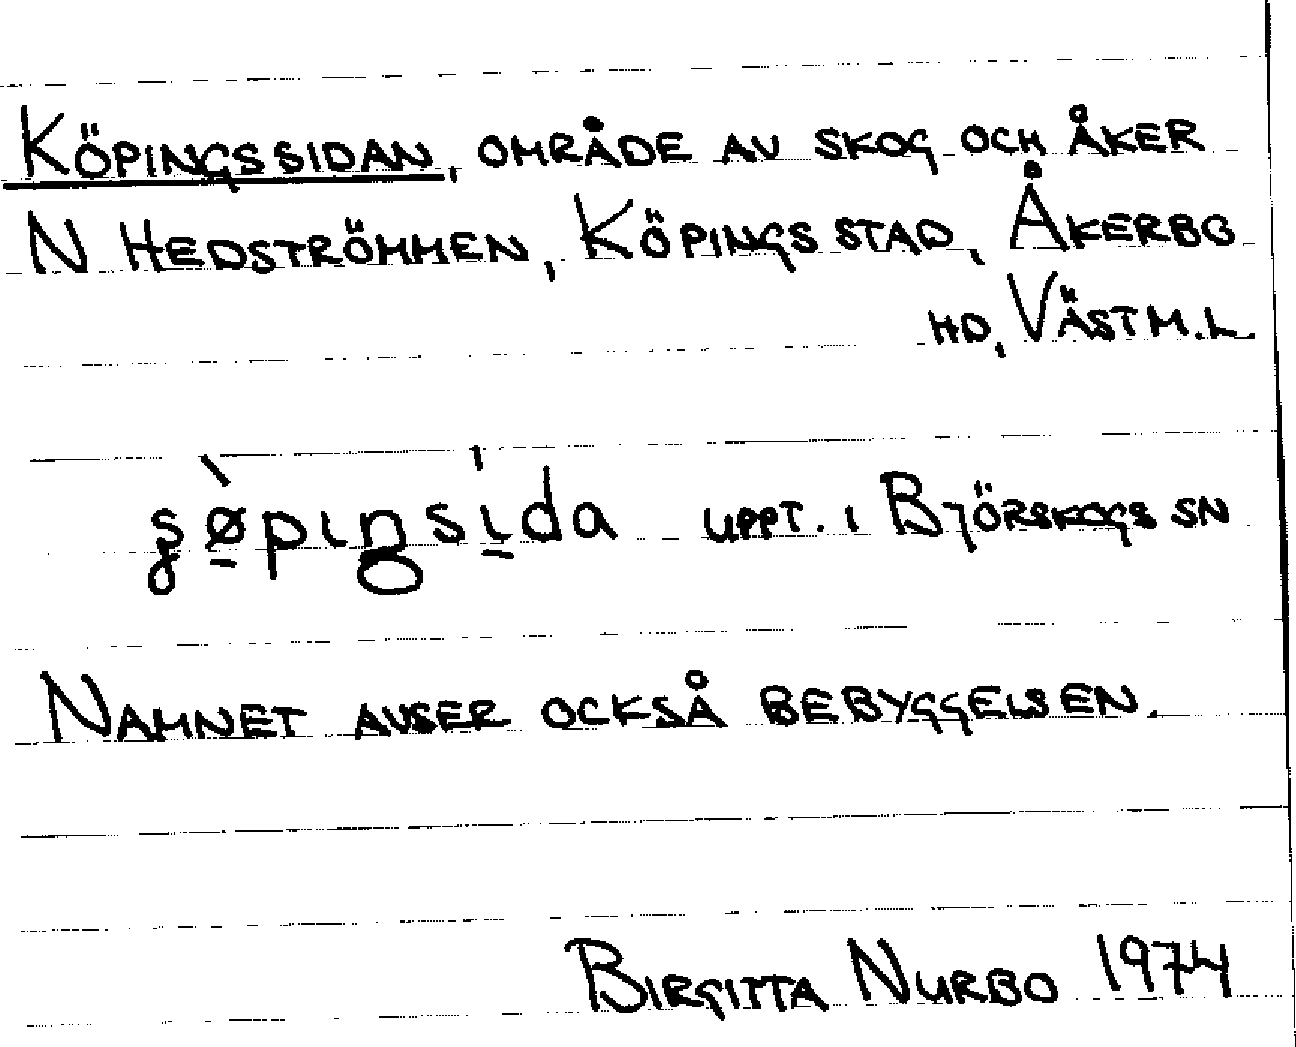 Köpingssidan, område av skog och åker
N Hedströmmen, Köpings stad, Åkerbo
hd, Västm.l.
uppt. i Björskogs sn
Namnet avser också bebyggelsen.
Birgitta Nurbo 1974